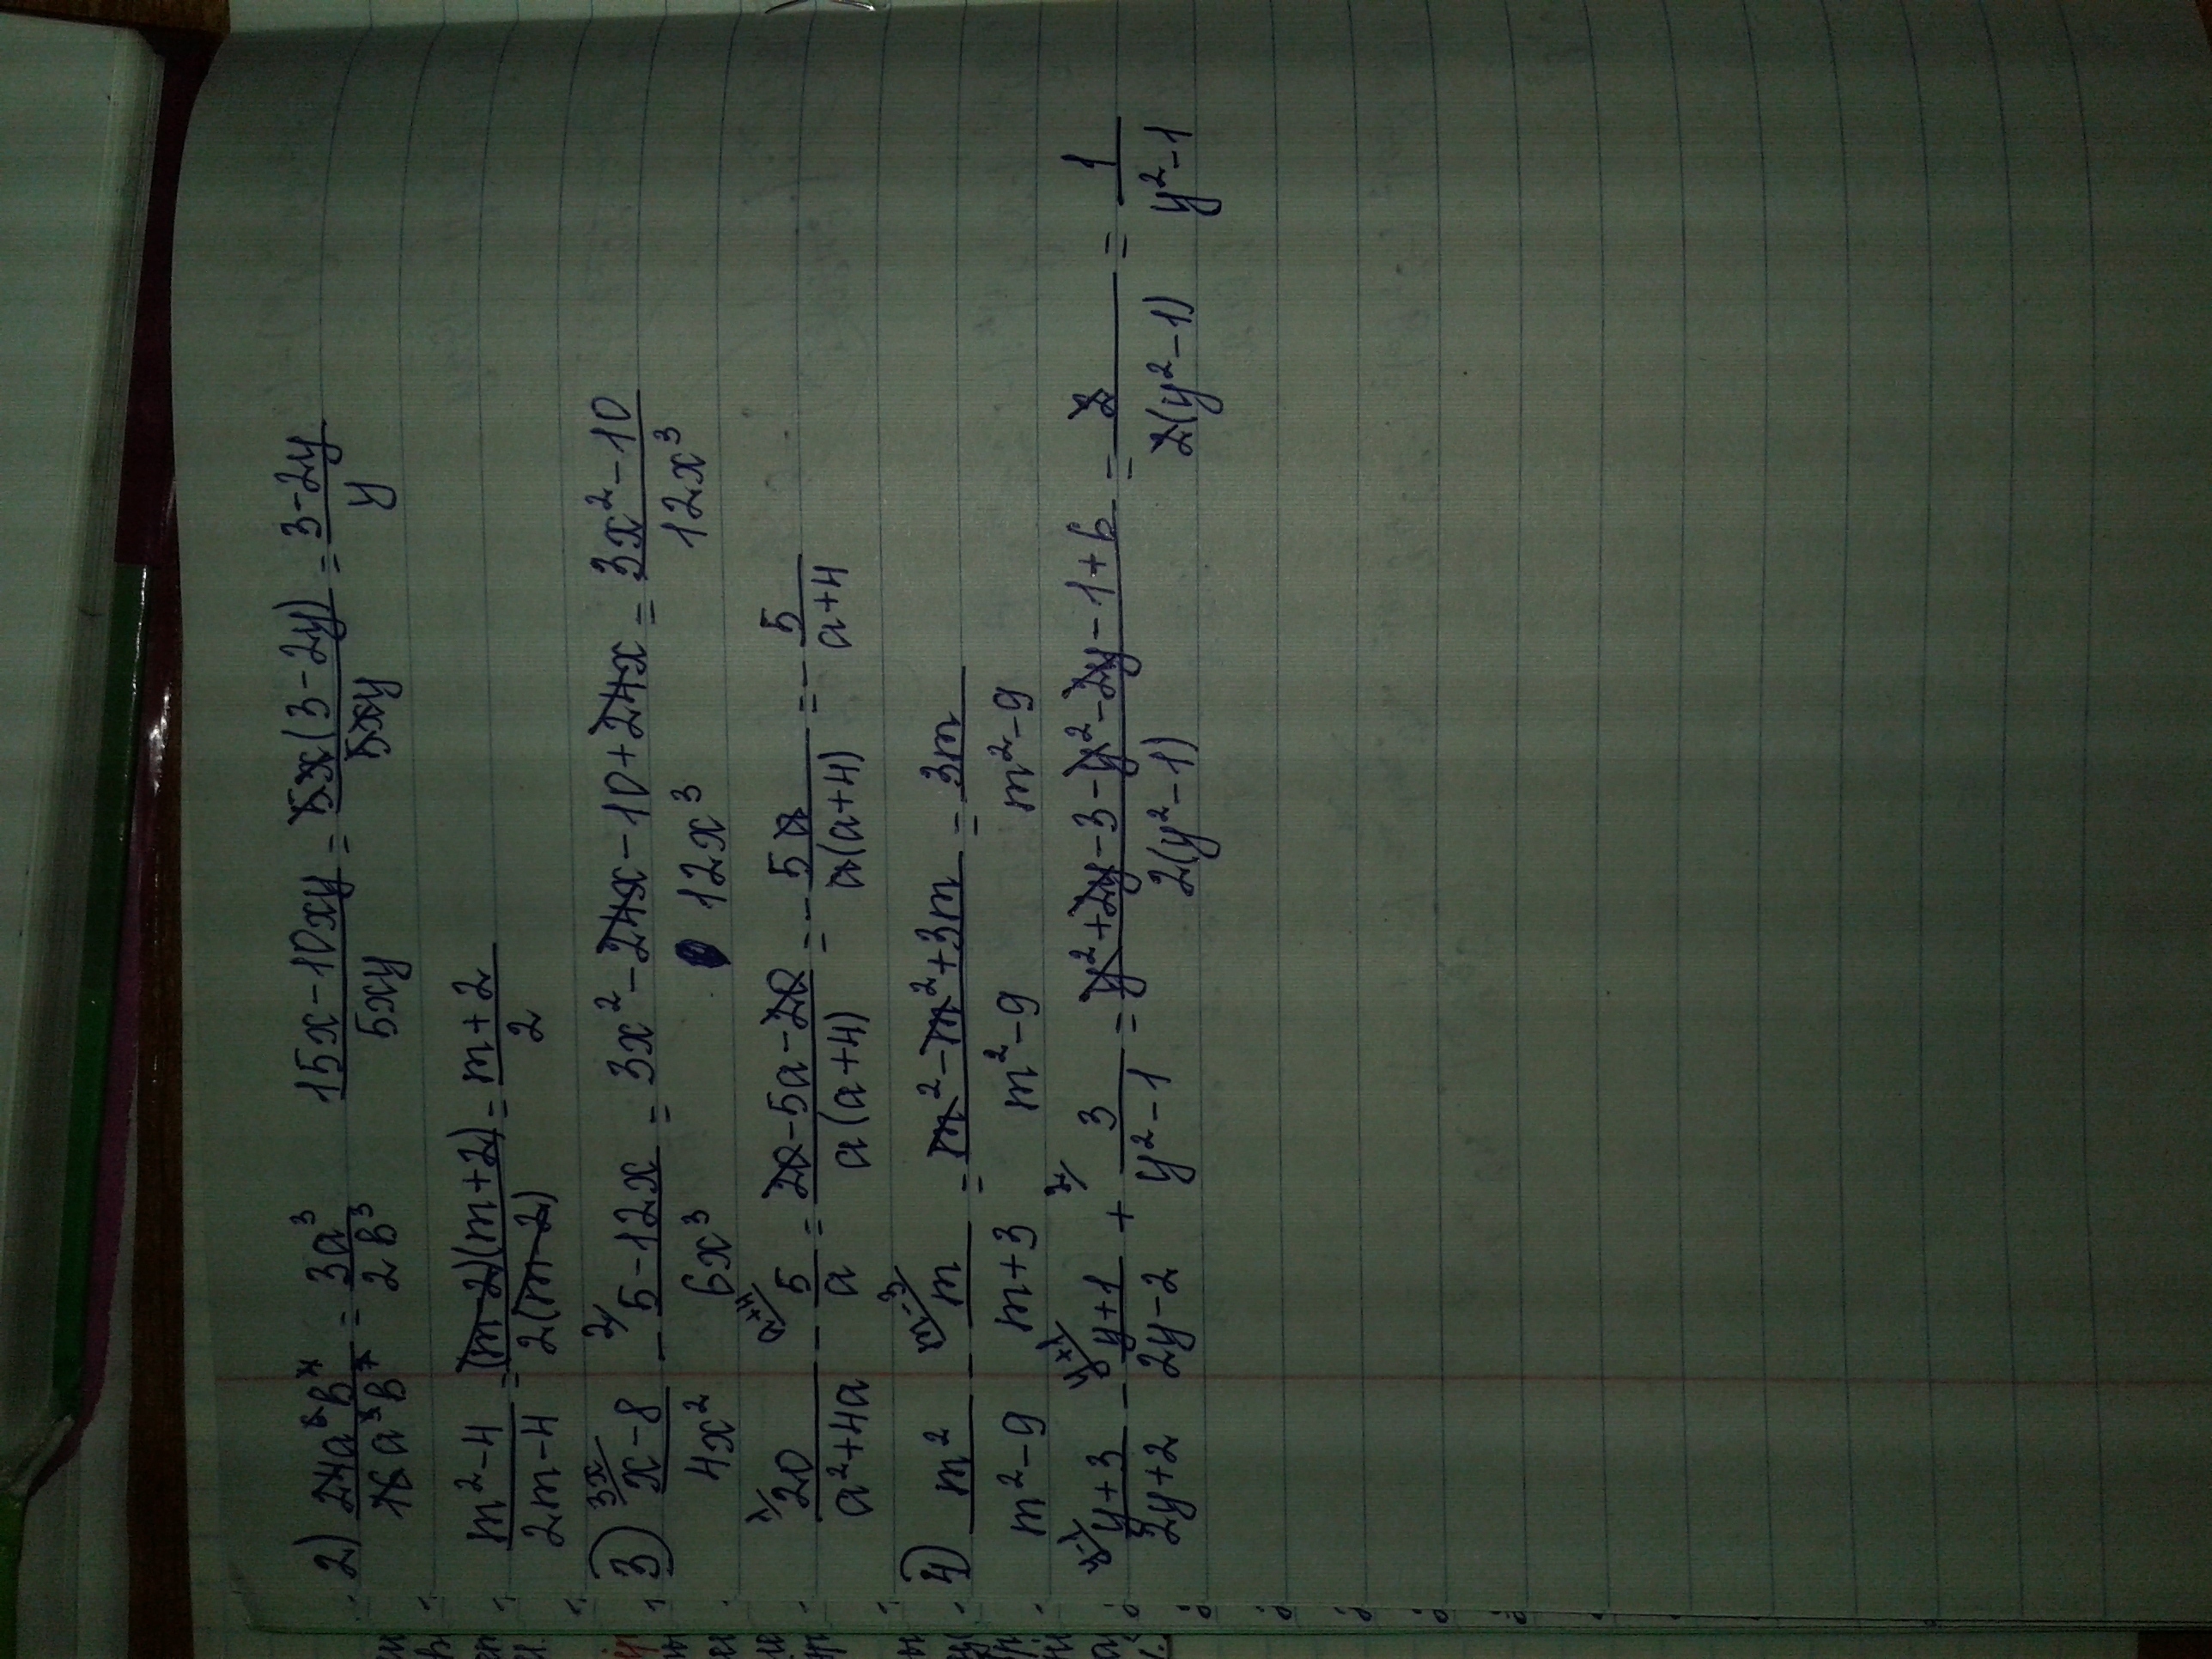 2) 24a⁸b⁷/16a⁵b⁷ = 3a³/2b³   15x-10xy/5xy = 5x(3-2y)/5xy = 3-2y/y
m²-4/2m-4 = (m-2)(m+2)/2(m-2) = m+2/2
3) 3x/ x-8/4x² - 2/ 5-12x/6x³ = 3x²-24x-10+24x/12x³ = 3x²-10/12x³
1/ 20/a²+4a - a+4/ 5/a = 20-5a-20/a(a+4) = - 5a/a(a+4) = - 5/a+4
4) m²/m²-9 - m-3/ m/m+3 = m²-m²+3m/m²-9 = 3m/m²-9
y-1/ y+3/2y+2 - y+1/ y+1/2y-2 + 2/ 3/y²-1 = y²+2y-3-y²-2y-1+6/2(y²-1) = 2/2(y²-1) = 1/y²-1